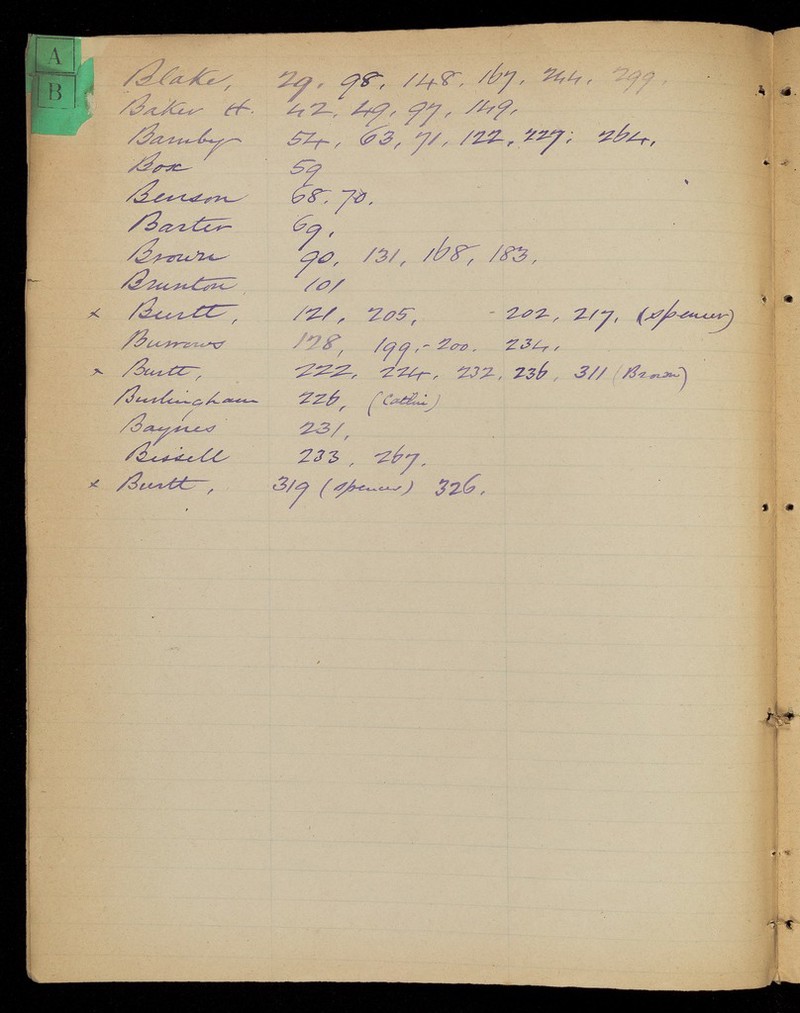 A
B
Blake, 29, 98, 148, 167, 244, 299.
Baker H. 42, 49, 97, 149,
Barnby 54, 63, 71, 122, 227; 264,
Box 59
Benson 68. 70.
Barter 69,
Brown 90, 131, 168, 183,
Brunton. 101
x Burtt, 121, 205, - 202, 217, (Spencer)
Burrows 128, 199,-200. 234,
x Burtt, 222, 224, 232, 236, 311 (Brown)
Burlingham 226, (Catlin)
Baynes 231,
Bissell 233, 267,
x Burtt, 319 (Spencer) 326.